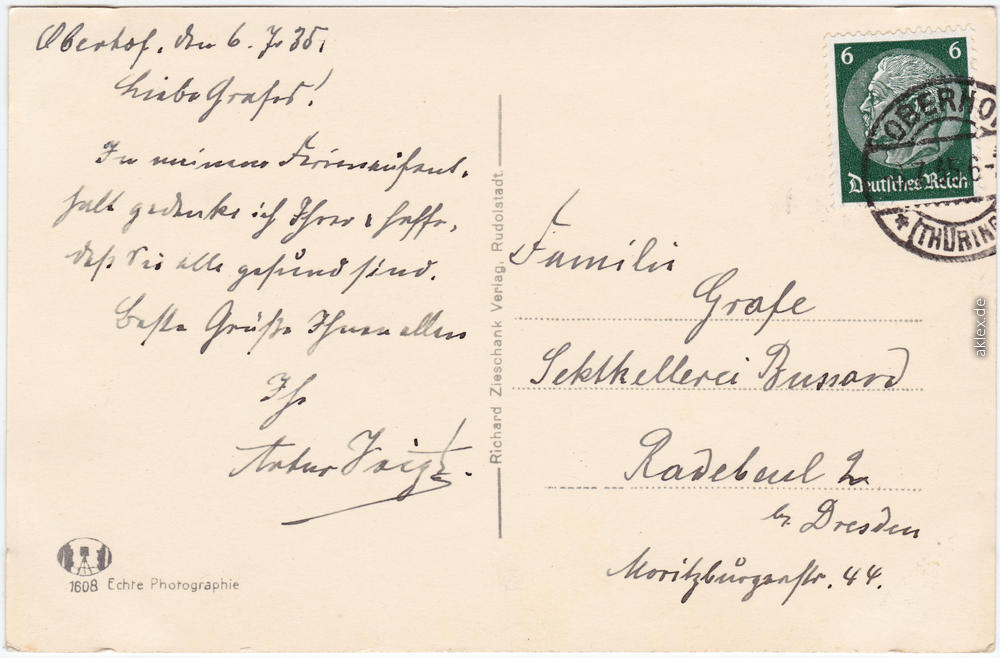 Oberhof, den 6. 7. 35.
Liebe Grafes!
In meinem Ferienaufent-
halt gedenke ich Ihrer & hoffe,
daß Sie alle gesund sind.
Beste Grüße Ihnen allen
Ihr
Artur Voigt.
1608 Echte Photographie
Richard Zieschank Verlag, Rudolstadt.
6 6
Deutsches Reich
OBERHO
(THÜRING
Familie
Grafe
Sektkellerei Bussard
Radebeul 2
bz. Dresden
Moritzburgerstr. 44.
aklex.de